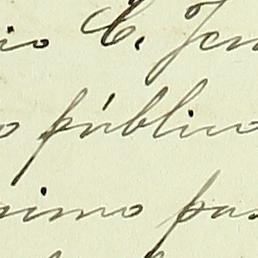 io C. Jen
o público
nimo pas